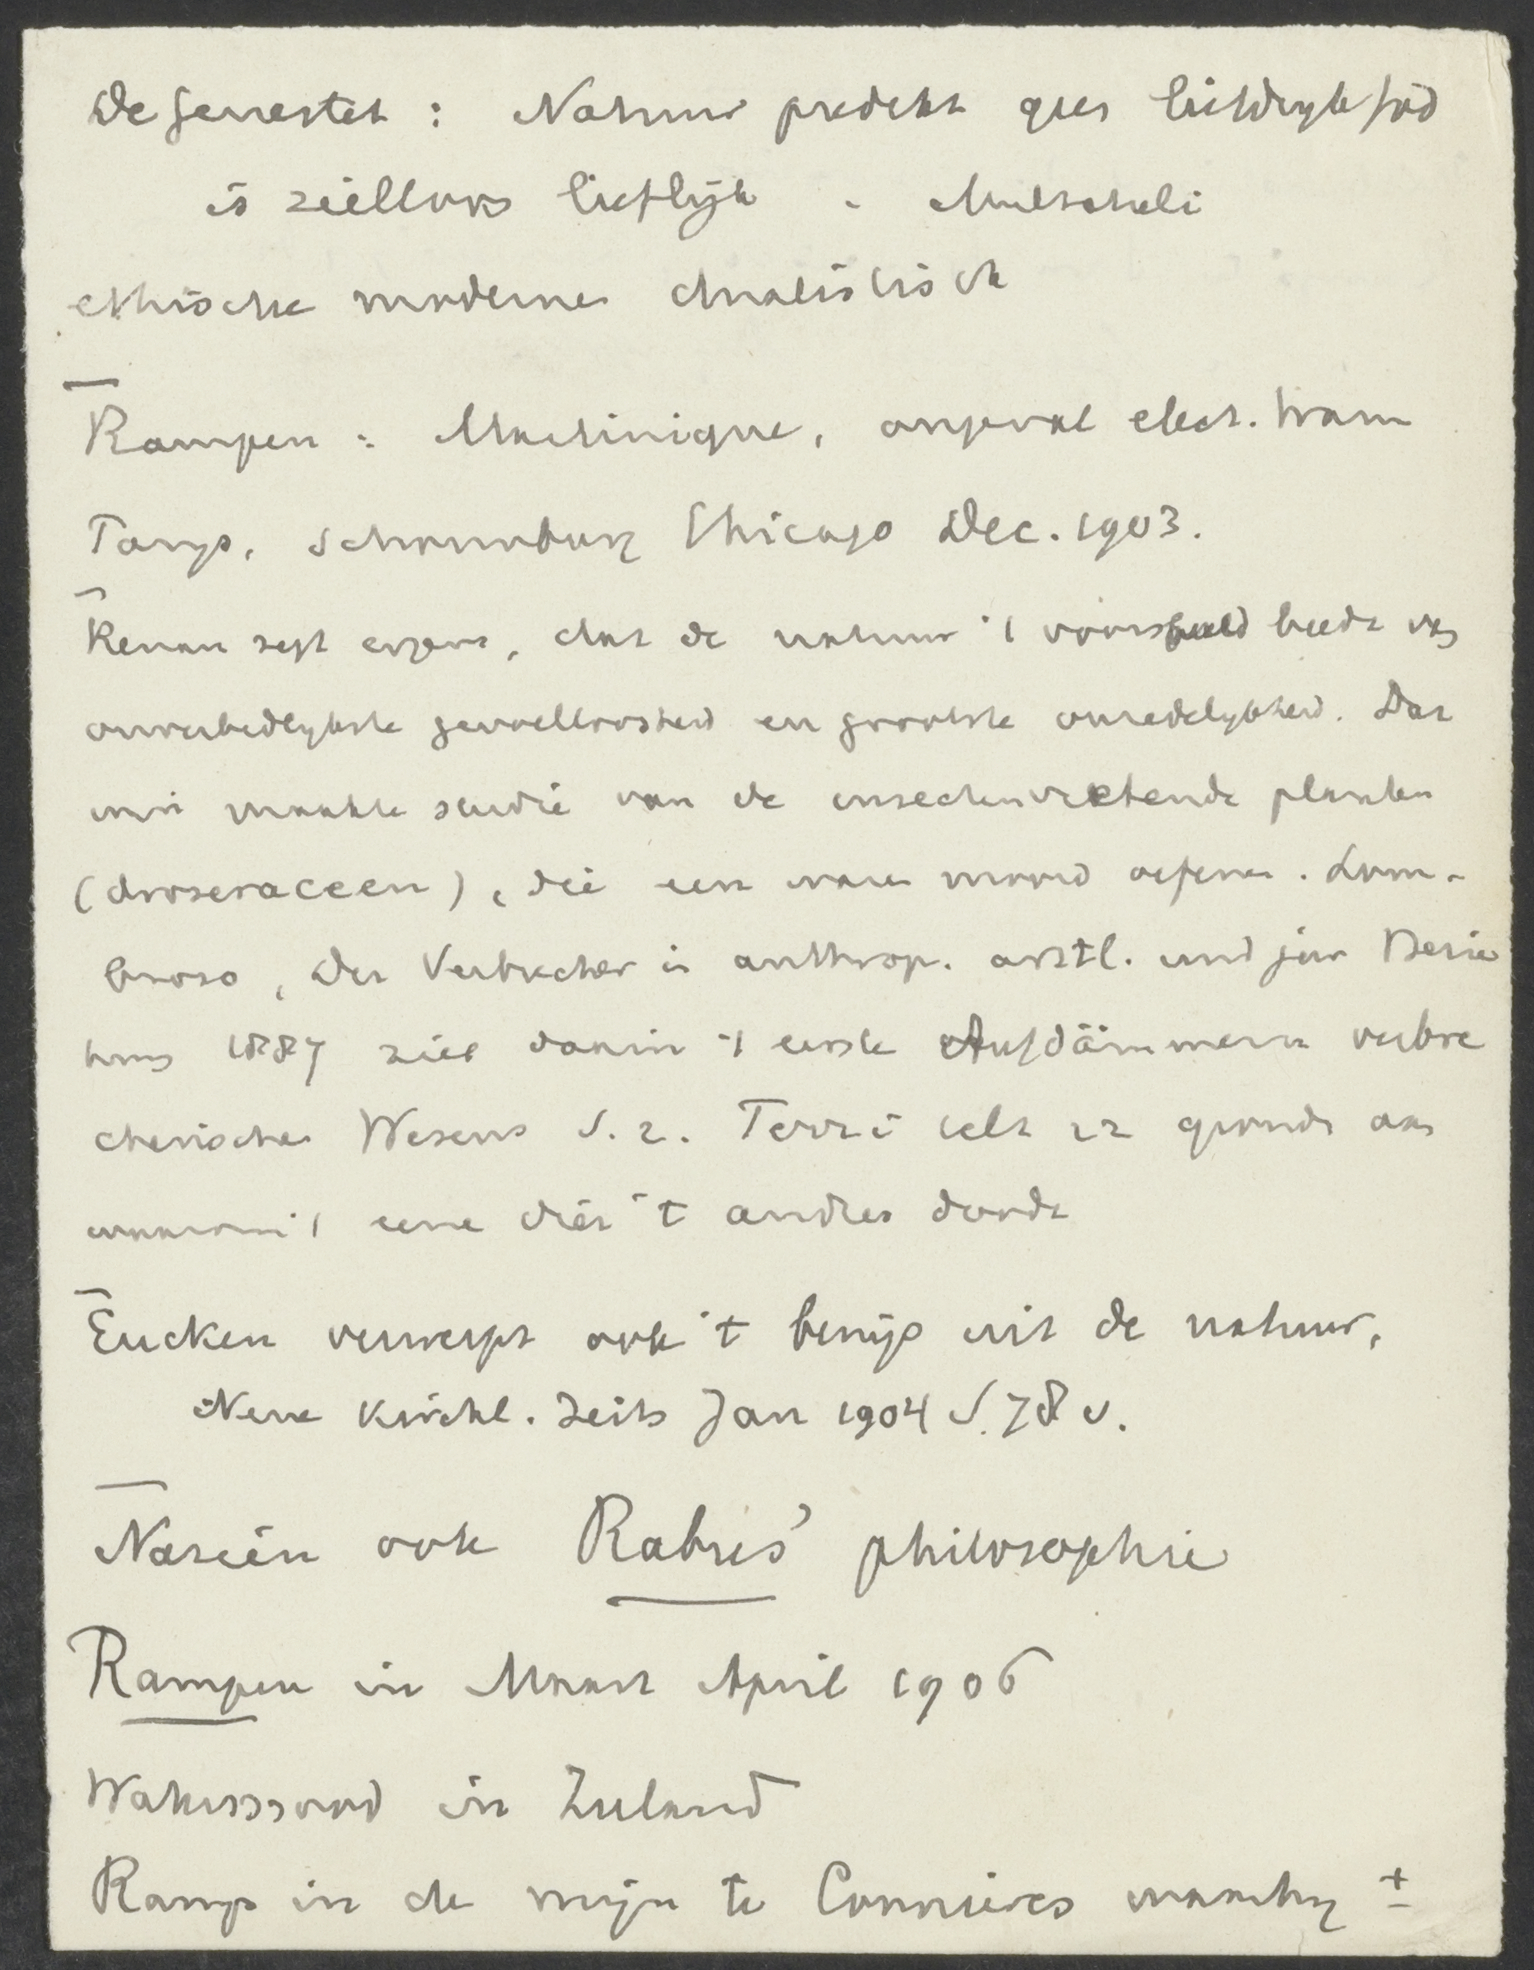 De Genestet: Natuur predekt geen liefdryk God
is zielloos lieflijk. Multatuli
ethische moderne dualistisch
Rampen: Martinique, ongeval elect. tram
Parijs, schouwburg Chicago Dec. 1903.
Renan zegt ergens, dat de natuur 't voorbeeld biedt van
onverbidlykste gevoelloosheid en grootste onzedelykheid. Dar
win maakte studie van de insectenvretende planten
(droseraceen), die een waren moord oefenen. Lom-
broso, Der Verbrecher in anthrop. arztl. und jur Bezie
hung 1887 ziet daarin 't eerste Aufdämmern verbre
cherischen Wesens S. 2. Ferri telt 22 gronden aan
waarom 't eene dier 't andere doodt
Eucken verwerpt ook 't bewijs uit de natuur,
Neue kirchl. Zeits Jan 1904 S. 78 v.
Nazien ook Rabus' philosophie
Rampen in Maart April 1906
Watersnood in Zeeland
Ramp in de mijn te Courrières waarbij ±